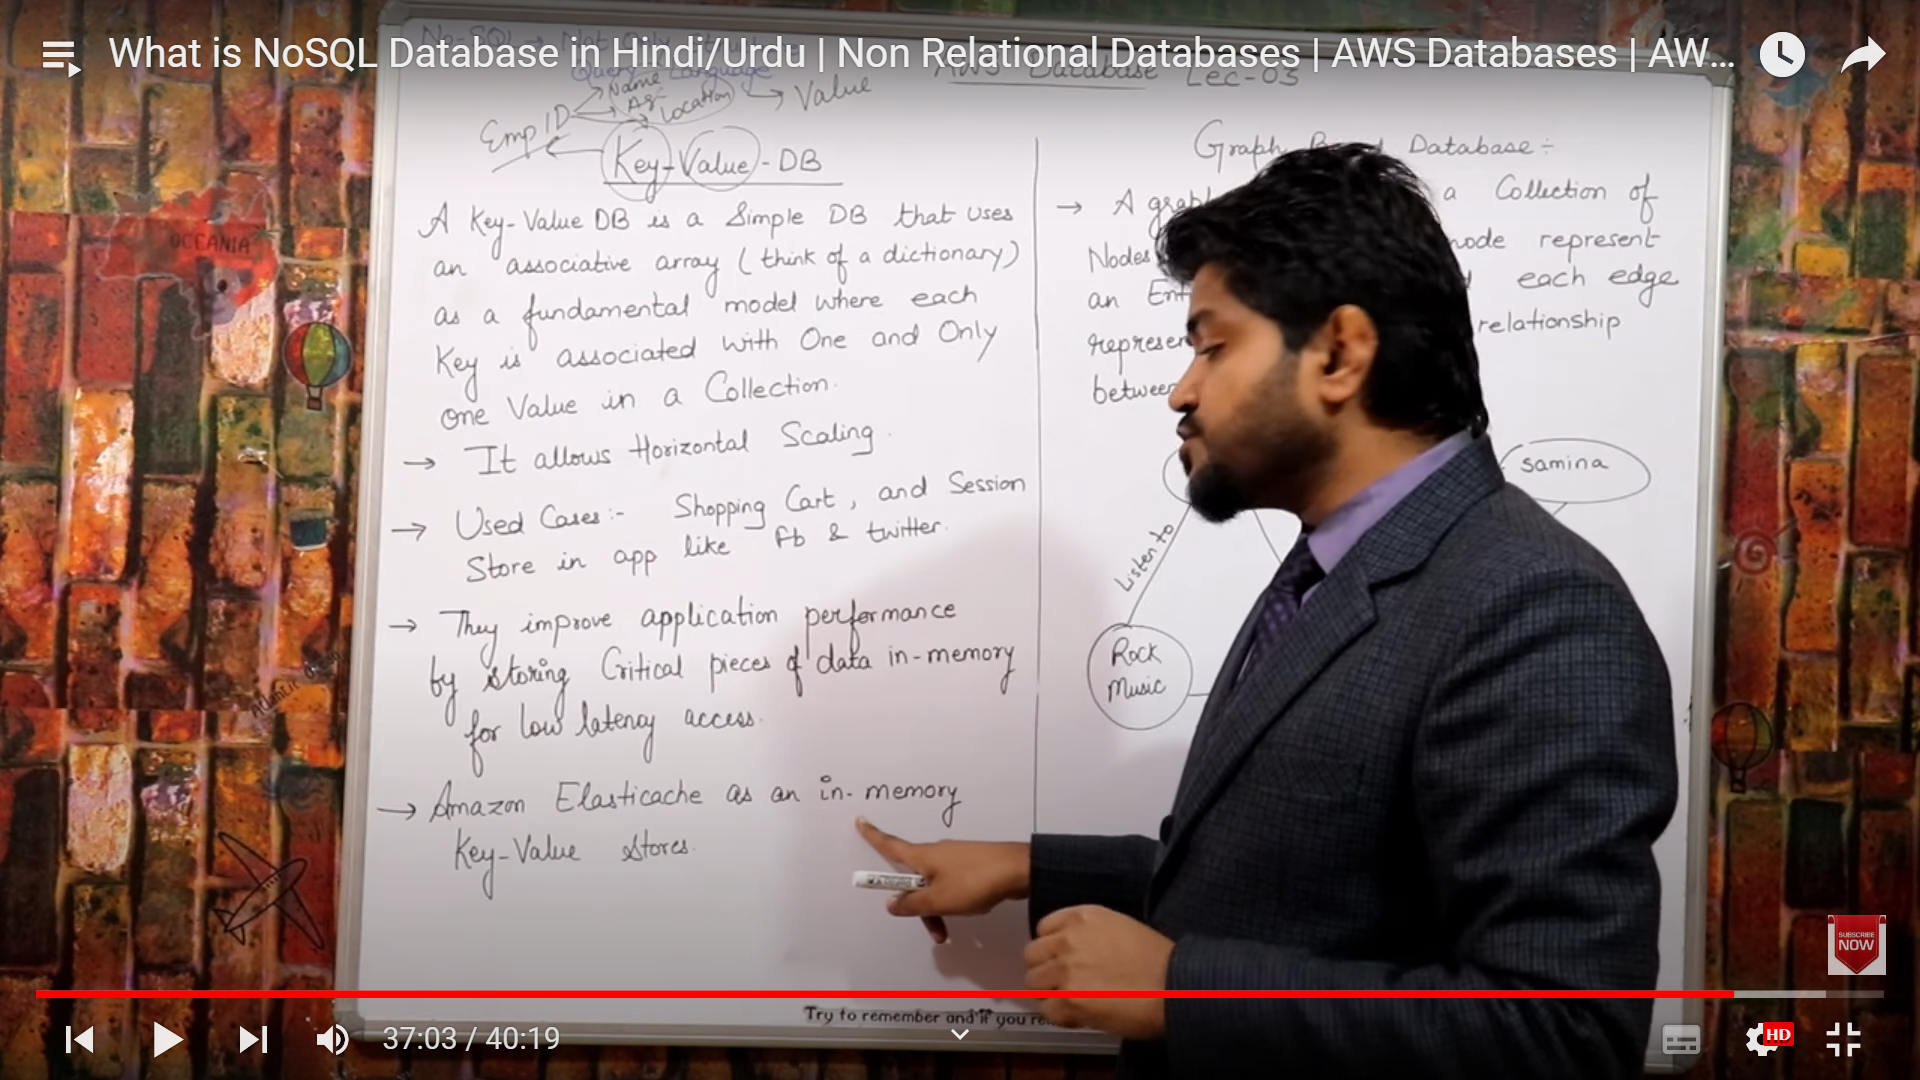 What is NoSQL Database in Hindi/Urdu | Non Relational Databases | AWS Databases | AW...
No-SQL → Not Only
Query Language
AWS Database Lec-03
Name
Age
Location
Value
Emp ID
Key-Value-DB
A Key-Value DB is a Simple DB that uses
an associative array (think of a dictionary)
as a fundamental model where each
Key is associated with One and Only
One Value in a Collection.
→ It allows Horizontal Scaling.
→ Used Cases:- Shopping Cart, and Session
Store in app like fb & twitter.
→ They improve application performance
by storing Critical pieces of data in-memory
for low latency access.
→ Amazon Elasticache as an in-memory
Key-Value Stores.
Graph Database:-
→ A grap a Collection of
Nodes node represent
an Ent each edge
represen relationship
between
Samina
Listen to
Rock
Music
OCEANIA
SUBSCRIBE
NOW
Try to remember and if you re
37:03 / 40:19
HD